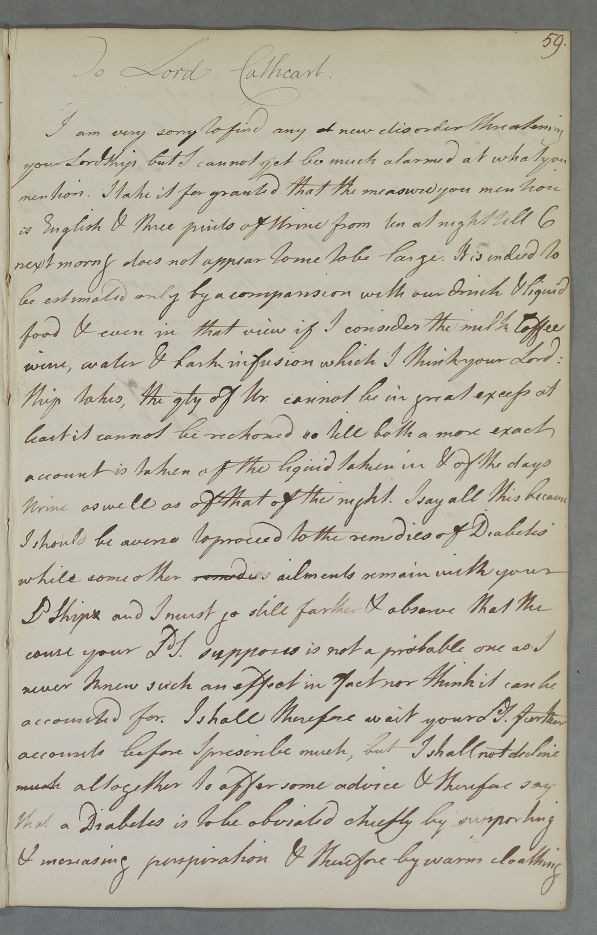 59.
To Lord Cathcart.
I am very sorry to find any new disorder threatening
your Lordship but I cannot yet be much alarmed at what you
mention. I take it for granted that the measure you mention
is English & three pints of Urine from ten at night till 6
next morng does not appear to me to be large. It is indeed to
be estimated only by a comparision with our drink & liquid
food & even in that view if I consider the milk Coffee
wine, water & bark infusion which I think your Lord:
ship takes, the qty of Ur. cannot be in great excess at
least it cannot be reckoned so till both a more exact
account is taken of the liquid taken in & of the days
Urine as well as of that of the night. I say all this because
I should be averse to proceed to the remedies of Diabetes
while some other remedies ailments remain with your
Ldship and I must go still farther & observe that the
cause your Ld S. supposes is not a probable one as I
never knew such an effect in fact nor think it can be
accounted for. I shall therefore wait your Ld S. further
accounts before I prescribe much, but I shall not decline
much altogether to offer some advice & therefore say
that a Diabetes is to be obviated chiefly by supporting
& increasing perspiration & therefore by warm cloathing